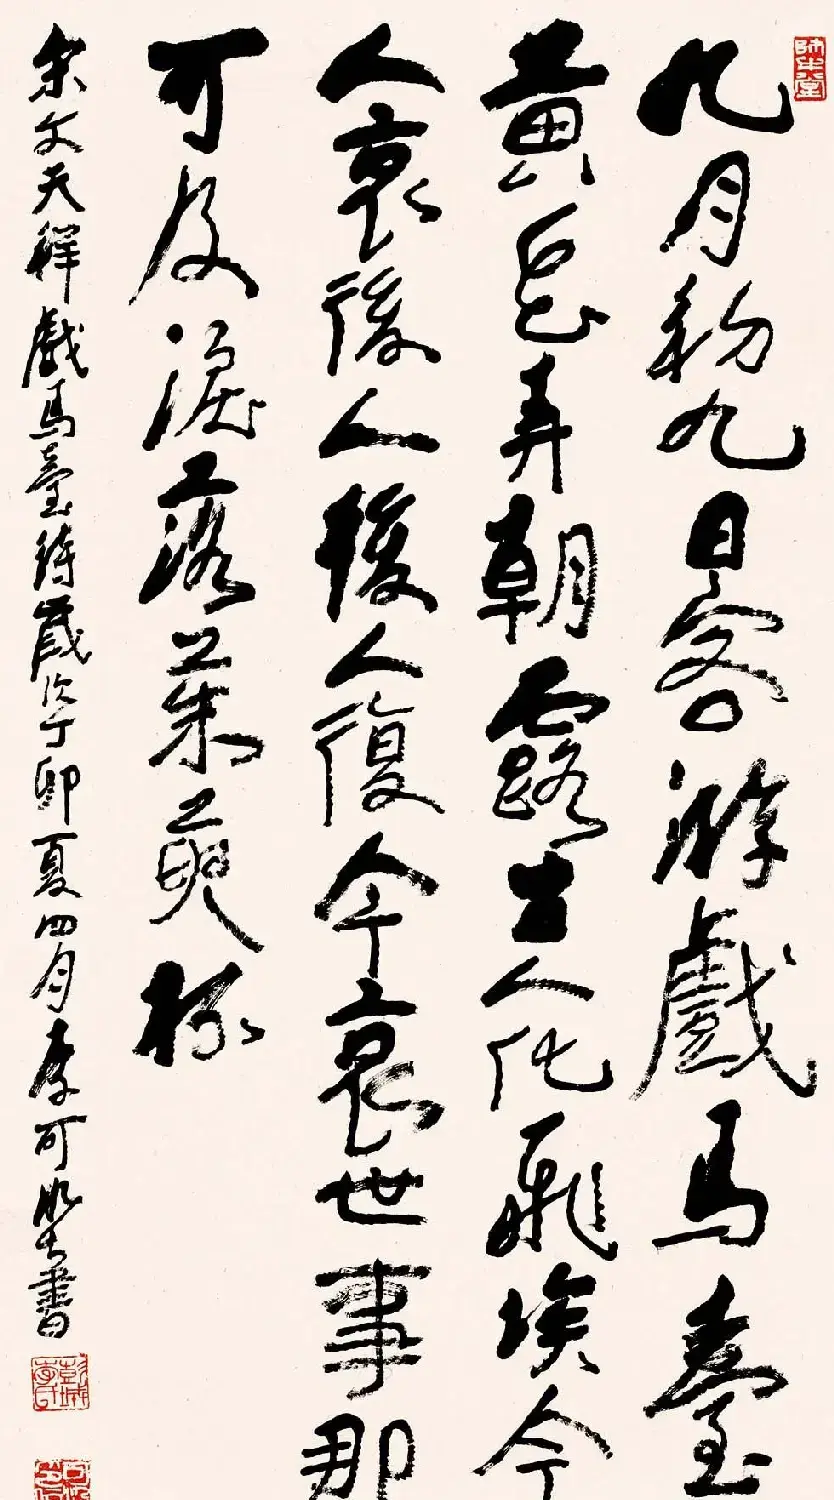 九月初九日客游戲馬臺
黃花弄朝露古人化飛埃今
人哀後人後人復今哀世事那
可及淚落茱萸杯
宋文天祥戲馬臺詩歲次丁卯夏四月李可染書
師牛堂
彭城李氏